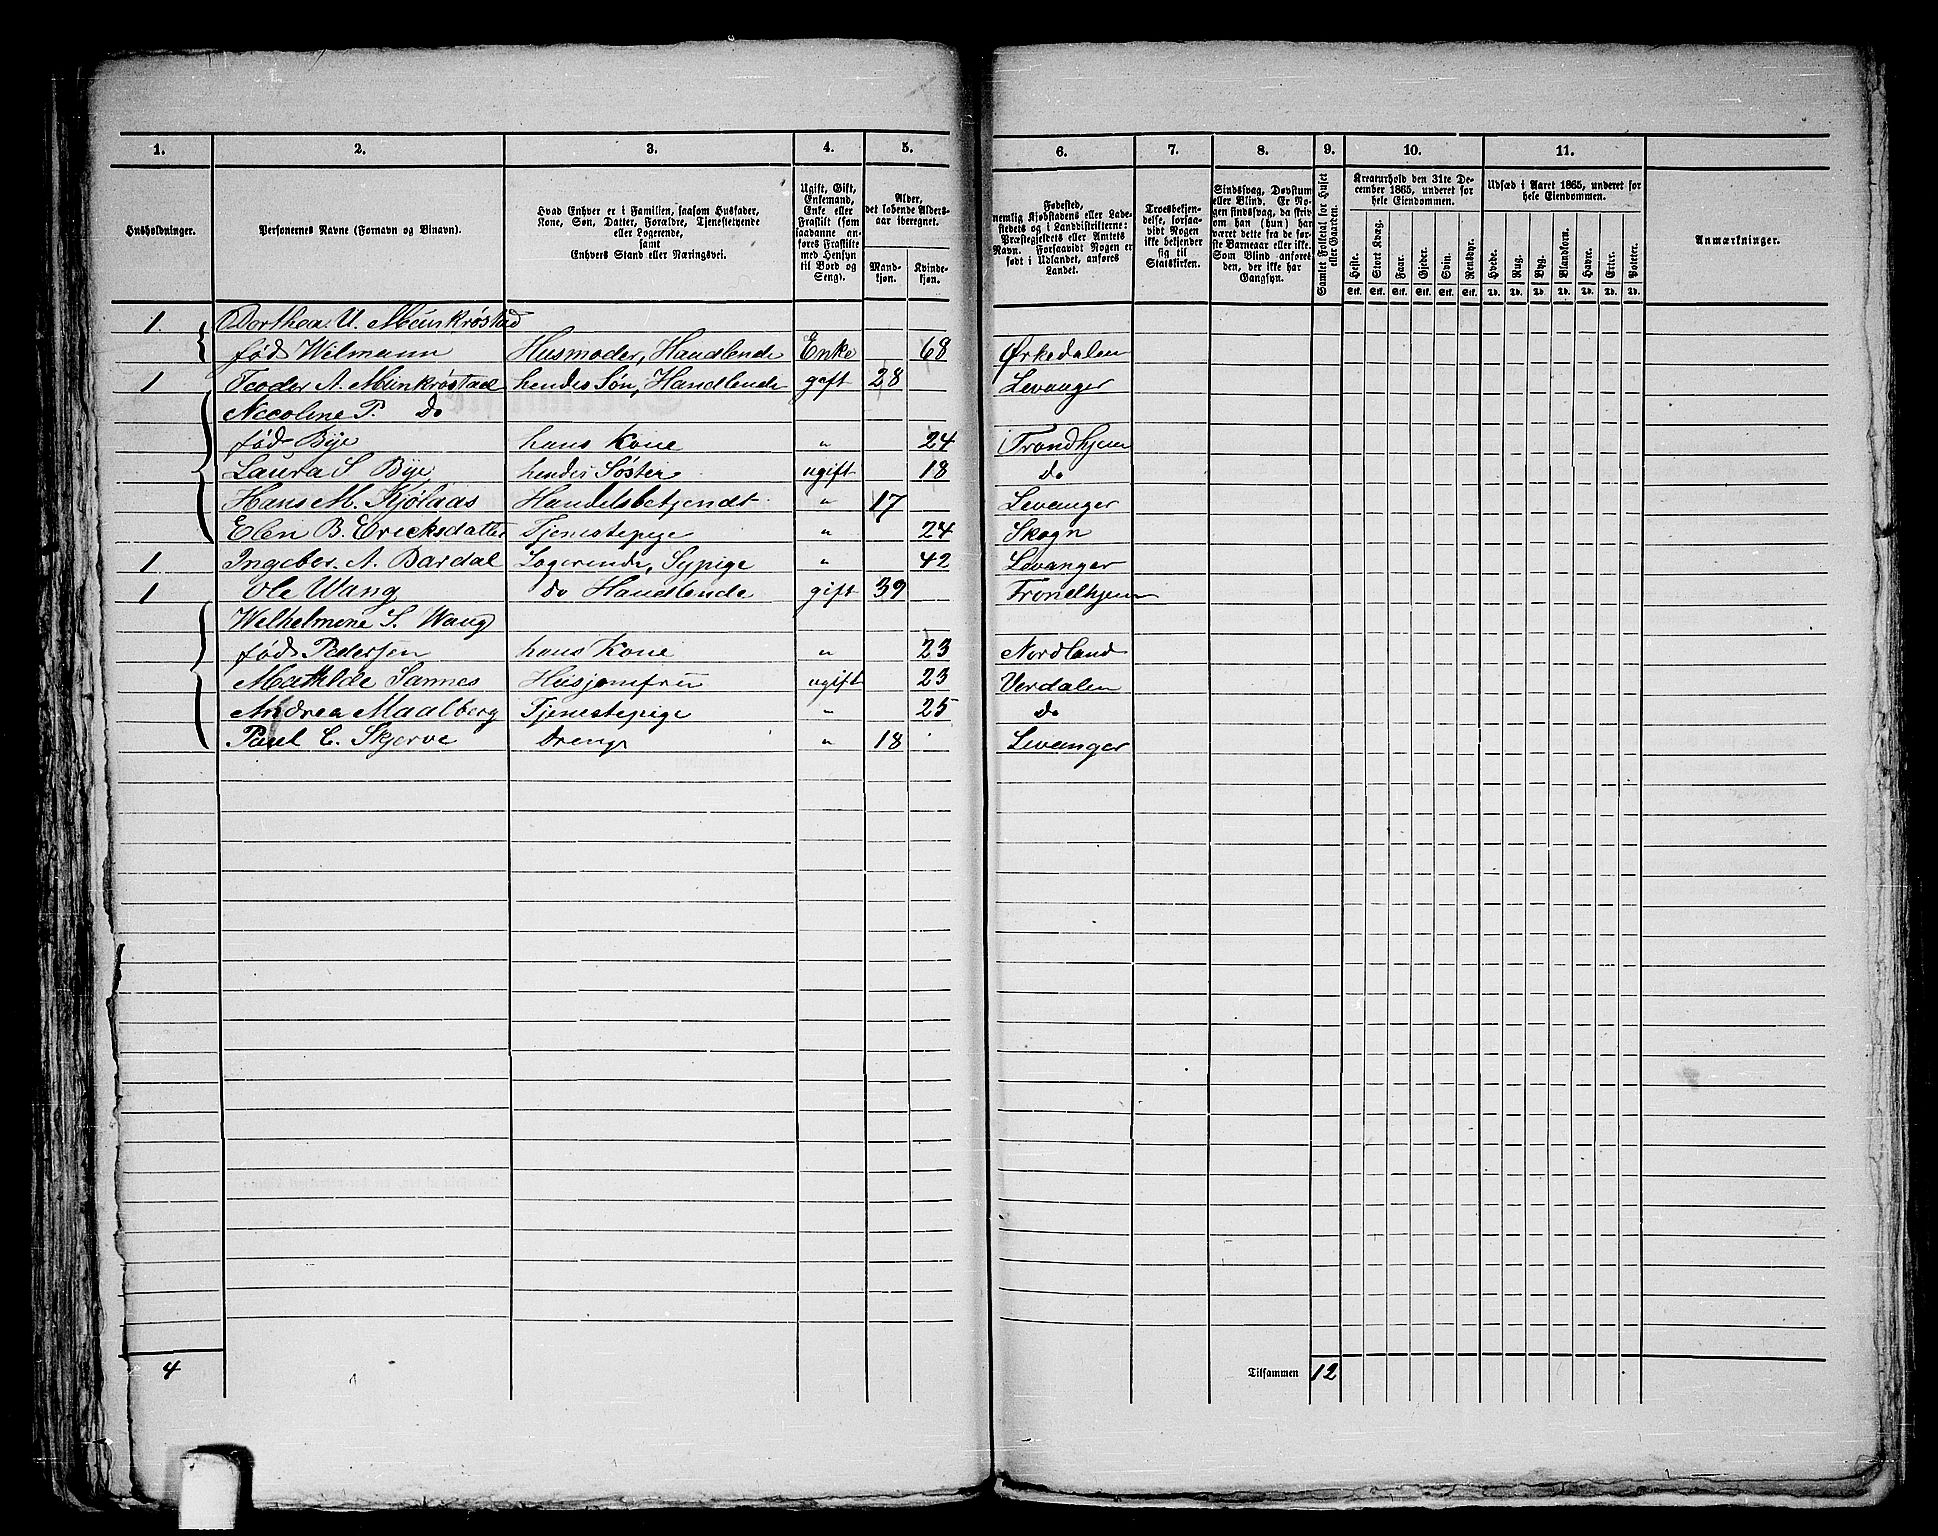 1. 2. 3. 4. 5. 6. 7. 8. 9. 10. 11.
Husholdninger.
Personernes Navne (Fornavn og Tilnavn).
Hvad Enhver er i Familien, saasom Husfader,
Kone, Søn, Datter, Forældre, Tjenestetyende
eller Logerende,
samt
Enhvers Stand eller Næringsvei.
Ugift, Gift,
Enkemand,
Enke eller
Fraskilt (som
saadanne an-
føres Fraskilte
med Hensyn
til Bord og
Seng).
Alder,
det løbende Alders-
aar iberegnet.
Mand-
kjøn.
Kvinde-
kjøn.
Fødested,
nemlig Kjøbstadens eller Lade-
stedets og i Landdistrikterne:
Præstegjeldets eller Amtets
Navn. Forsaavidt Nogen er
født i Udlandet, anføres
Landet.
Troesbekjen-
delse, forsaa-
vidt Nogen
ikke bekjender
sig til
Statskirken.
Sindssvag, Døvstum
eller Blind. Er No-
gen sindssvag, da skriv
om han (hun) har
været dette fra de før-
ste Barneaar eller ikke.
Som Blind anføres
den, der ikke har
Gangsyn.
Samlet Folketal for Huset
eller Gaarden.
Kreaturhold den 31te De-
cember 1865, underet for
hele Eiendommen.
Heste. Stort Kvæg. Faar. Gjeder. Svin. Rensdyr.
Stk. Stk. Stk. Stk. Stk. Stk.
Udsæd i Aaret 1865, underet for
hele Eiendommen.
Hvede. Rug. Byg. Blandkorn. Havre. Erter. Poteter.
Td. Td. Td. Td. Td. Td. Td.
Anmærkninger.
1. Dorthea U. Munkrøstad
fød Wilmann Husmoder, Handlende Enke 68 Ørkedalen
1 Teodor A. Munkrøstad hendes Søn, Handlende gift 28 Levanger
Nicoline P. do
fød Bye hans Kone " 24 Trondhjem
Laura S Bye hendes Søster ugift 18 do
Hans M. Kjølaas Handelsbetjendt " 17 Levanger
Elen B. Ericksdatter Tjenestepige " 24 Skogn
1. Ingeber. A. Bardal Logerende, Sypige " 42 Levanger
1 Ole Wang do Handlende gift 39 Trondhjem
Welhelmene S. Wang
fød Pedersen hans Kone " 23 Nordland
Mathilde Sannes Husjomfru ugift 23 Verdalen
Andrea Maalberg Tjenestepige " 25 do
Paul C. Skjerve Dreng " 18 Levanger
4 Tilsammen 12